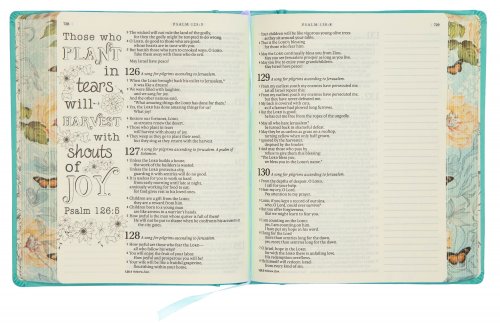 728
PSALM • 125:3
Those who
PLANT
in
tears
will
HARVEST
with
shouts
of
JOY.
Psalm 126:5
3 The wicked will not rule the land of the godly,
for then the godly might be tempted to do wrong.
4 O LORD, do good to those who are good,
whose hearts are in tune with you.
5 But banish those who turn to crooked ways, O LORD.
May Israel have peace!
126 A song for pilgrims ascending to Jerusalem.
1 When the LORD brought back his exiles to Jerusalem,
it was like a dream!
2 We were filled with laughter,
and we sang for joy.
And the other nations said,
"What amazing things the LORD has done for them."
3 Yes, the LORD has done amazing things for us!
What joy!
4 Restore our fortunes, LORD,
as streams renew the desert.
5 Those who plant in tears
will harvest with shouts of joy.
6 They weep as they go to plant their seed,
but they sing as they return with the harvest.
127 A song for pilgrims ascending to Jerusalem. A psalm of
Solomon.
1 Unless the LORD builds a house,
the work of the builders is wasted.
Unless the LORD protects a city,
guarding it with sentries will do no good.
2 It is useless for you to work so hard
from early morning until late at night,
anxiously working for food to eat;
for God gives rest to his loved ones.
3 Children are a gift from the LORD;
they are a reward from him.
4 Children born to a young man
are like arrows in a warrior's hands.
5 How joyful is the man whose quiver is full of them!
He will not be put to shame when he confronts his accusers at the city gates.
128 A song for pilgrims ascending to Jerusalem.
1 How joyful are those who fear the LORD—
all who follow his ways!
2 You will enjoy the fruit of your labor.
How joyful and prosperous you will be!
3 Your wife will be like a fruitful grapevine,
flourishing within your home.
PSALM • 130:8
729
Your children will be like vigorous young olive trees
as they sit around your table.
4 That is the LORD's blessing
for those who fear him.
5 May the LORD continually bless you from Zion.
May you see Jerusalem prosper as long as you live.
6 May you live to enjoy your grandchildren.
May Israel have peace!
129 A song for pilgrims ascending to Jerusalem.
1 From my earliest youth my enemies have persecuted me.
Let all Israel repeat this:
2 From my earliest youth my enemies have persecuted me,
but they have never defeated me.
3 My back is covered with cuts,
as if a farmer had plowed long furrows.
4 But the LORD is good;
he has cut me free from the ropes of the ungodly.
5 May all who hate Jerusalem
be turned back in shameful defeat.
6 May they be as useless as grass on a rooftop,
turning yellow when only half grown,
7 ignored by the harvester,
despised by the binder.
8 And may those who pass by
refuse to give them this blessing:
"The LORD bless you;
we bless you in the LORD's name."
130 A song for pilgrims ascending to Jerusalem.
1 From the depths of despair, O LORD,
I call for your help.
2 Hear my cry, O Lord.
Pay attention to my prayer.
3 LORD, if you kept a record of our sins,
who, O Lord, could ever survive?
4 But you offer forgiveness,
that we might learn to fear you.
5 I am counting on the LORD;
yes, I am counting on him.
I have put my hope in his word.
6 I long for the Lord
more than sentries long for the dawn,
yes, more than sentries long for the dawn.
7 O Israel, hope in the LORD;
for with the LORD there is unfailing love.
His redemption overflows.
8 He himself will redeem Israel
from every kind of sin.